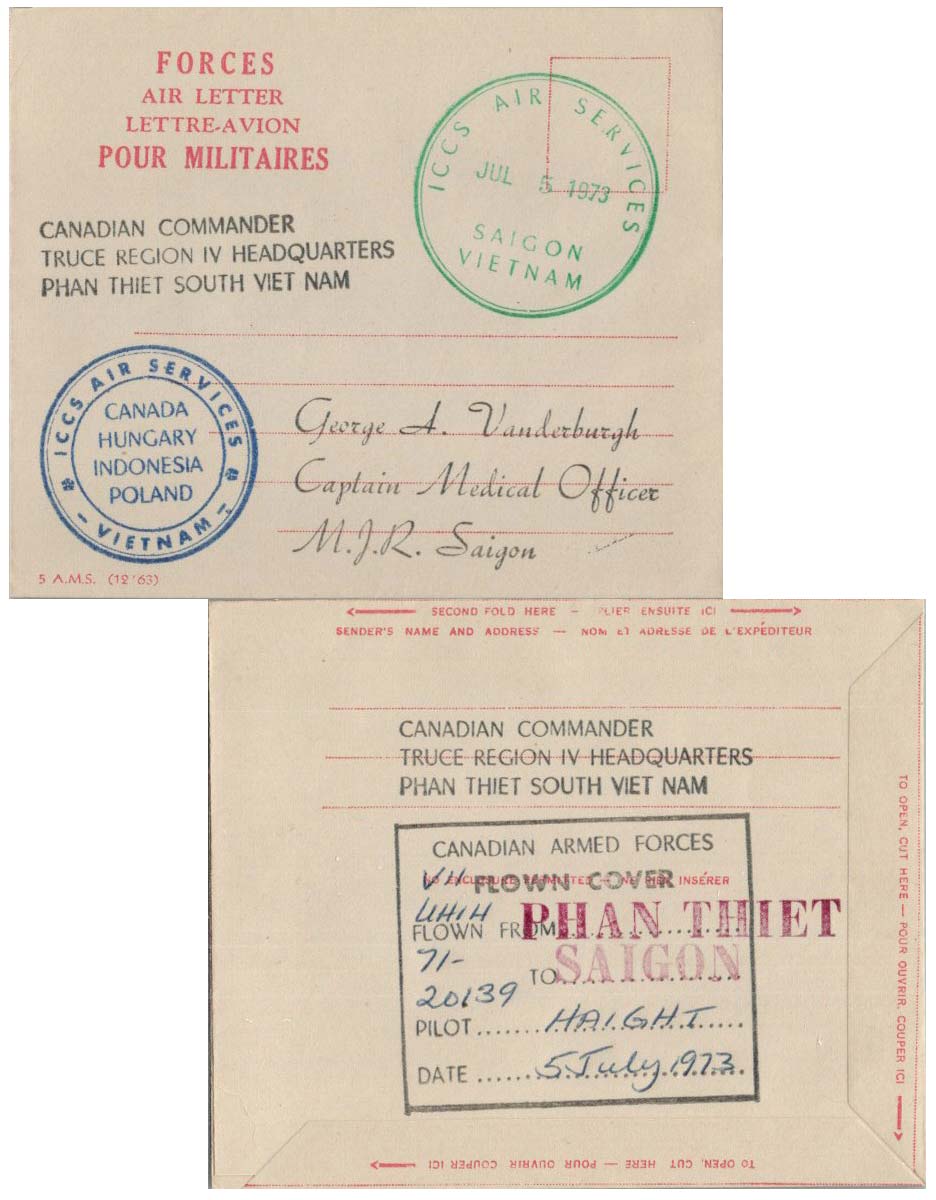 FORCES
AIR LETTER
LETTRE-AVION
POUR MILITAIRES
ICCS AIR SERVICES
JUL 5 1973
SAIGON
VIETNAM
CANADIAN COMMANDER
TRUCE REGION IV HEADQUARTERS
PHAN THIET SOUTH VIET NAM
ICCS AIR SERVICES
CANADA
HUNGARY
INDONESIA
POLAND
- VIETNAM -
George A. Vanderburgh
Captain Medical Officer
M.J.R. Saigon
5 A.M.S. (12/63)
SECOND FOLD HERE — PLIER ENSUITE ICI
SENDER'S NAME AND ADDRESS — NOM ET ADRESSE DE L'EXPÉDITEUR
CANADIAN COMMANDER
TRUCE REGION IV HEADQUARTERS
PHAN THIET SOUTH VIET NAM
CANADIAN ARMED FORCES
NO ENCLOSURE PERMITTED — NE RIEN INSÉRER
FLOWN COVER
UH1H
FLOWN FROM PHAN THIET
71-
TO SAIGON
20139
PILOT ....... HAIGHT .....
DATE ...... 5 July 1973
TO OPEN, CUT HERE — POUR OUVRIR, COUPER ICI
TO OPEN, CUT HERE — POUR OUVRIR COUPER ICI